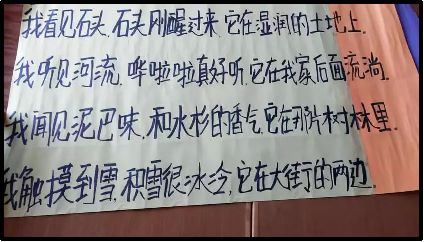 我看见石头,石头刚醒过来,它在湿润的土地上.
我听见河流,哗啦啦真好听,它在我家后面流淌.
我闻见泥巴味,和水杉的香气,它在那片树林里.
我触摸到雪,积雪很冰冷,它在大街的两边.